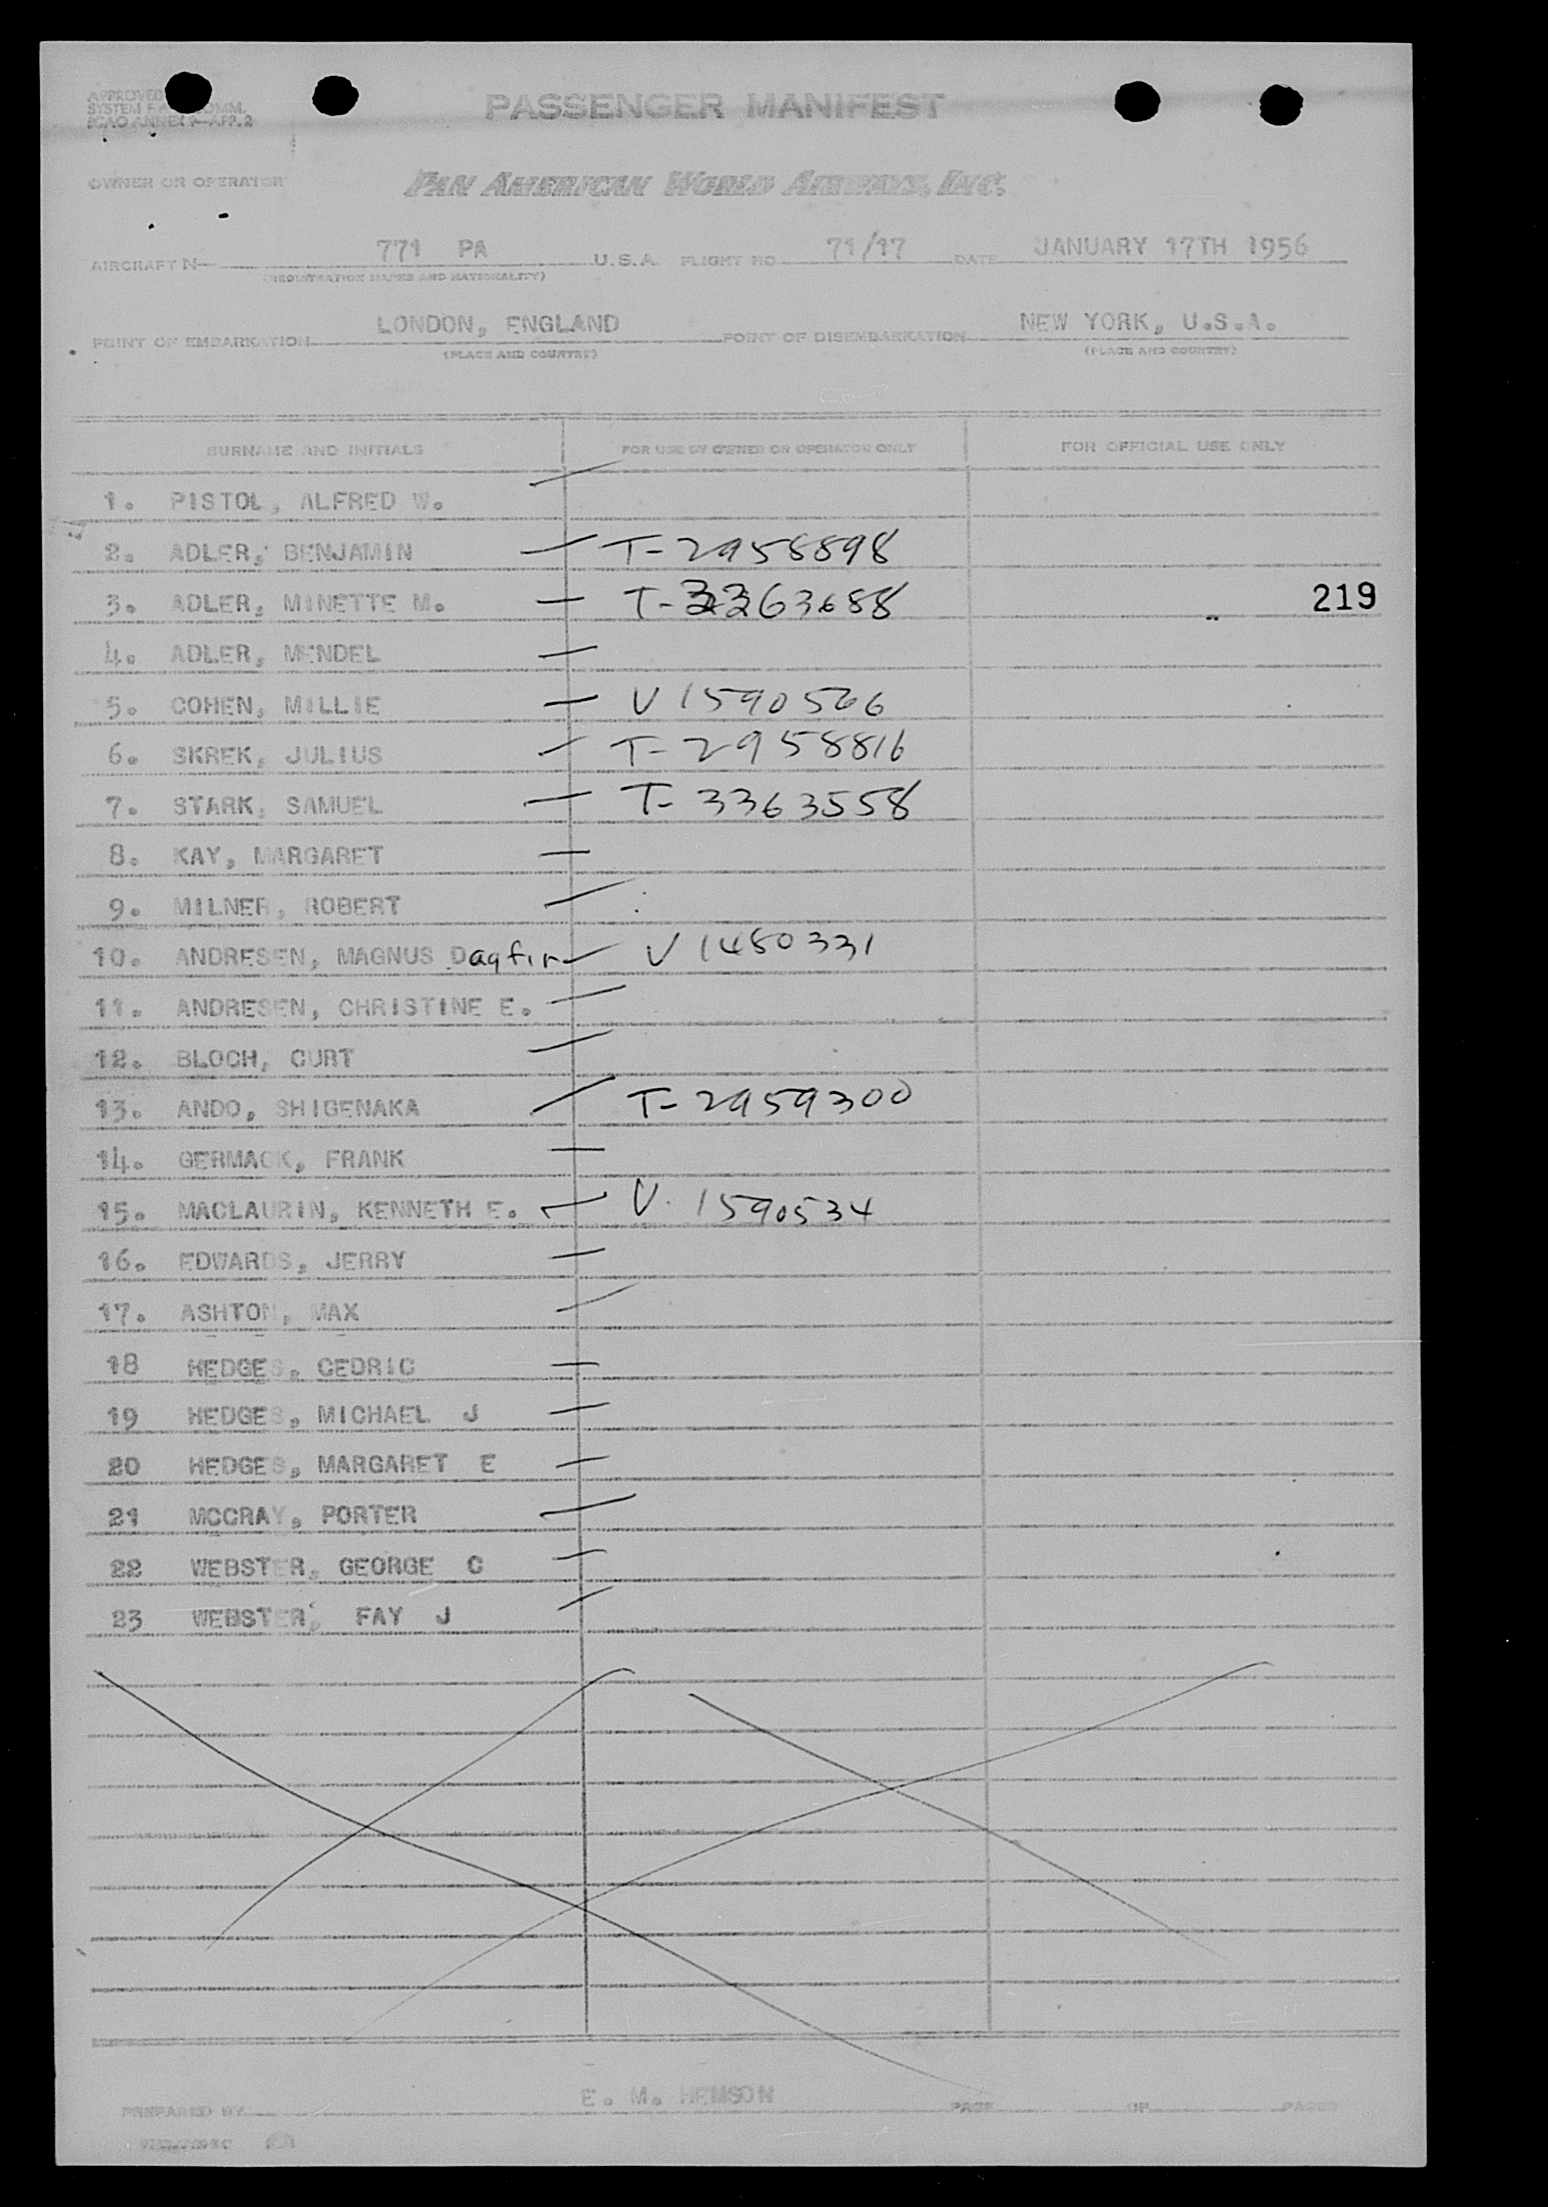 APPROVED
SYSTEM COMM.
ICAO ANNEX 9—APP. 2
PASSENGER MANIFEST
OWNER OR OPERATOR PAN AMERICAN WORLD AIRWAYS, INC.
AIRCRAFT N 771 PA U.S.A. FLIGHT NO 71/17 DATE JANUARY 17TH 1956
(REGISTRATION MARKS AND NATIONALITY)
POINT OF EMBARKATION LONDON, ENGLAND POINT OF DISEMBARKATION NEW YORK, U.S.A.
(PLACE AND COUNTRY) (PLACE AND COUNTRY)
SURNAME AND INITIALS FOR USE BY OWNER OR OPERATOR ONLY FOR OFFICIAL USE ONLY
1. PISTOL, ALFRED W.
2. ADLER, BENJAMIN T-2958898
3. ADLER, MINETTE M. T-3363688 219
4. ADLER, MENDEL
5. COHEN, MILLIE V 1590566
6. SKREK, JULIUS T-2958816
7. STARK, SAMUEL T-3363558
8. KAY, MARGARET
9. MILNER, ROBERT
10. ANDRESEN, MAGNUS Dagfin V 1480331
11. ANDRESEN, CHRISTINE E.
12. BLOCH, CURT
13. ANDO, SHIGENAKA T-2959300
14. GERMACK, FRANK
15. MACLAURIN, KENNETH E. V. 1590534
16. EDWARDS, JERRY
17. ASHTON, MAX
18 HEDGES, CEDRIC
19 HEDGES, MICHAEL J
20 HEDGES, MARGARET E
21 MCCRAY, PORTER
22 WEBSTER, GEORGE C
23 WEBSTER, FAY J
PREPARED BY E. M. HEMSON PAGE OF PAGES